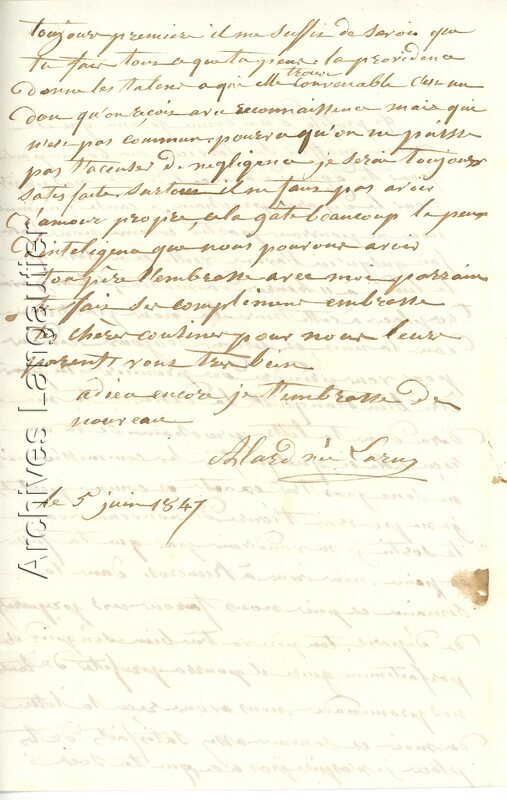 toujours premiere il me suffir de savoir que
tu fais tous ce que tu peux. la providence
Donne les talens a qui elle trouve convenable c'est un
don qu'on reçois avec reconnaissance mais qui
n'est pas commun, pourvu qu'on ne puisse
pas t'accuser de negligence je serai toujours
satisfaite. surtout il ne faut pas avoir
d'amour propre, cela gâte beaucoup le peu
d'inteligence que nous pouvons avoir
ton père t'embrasse avec moi parrain
te fais ses complimens embrasse
chères cousines pour nous leurs
parents vont tres bien
adieu encore je t'embrasse de
nouveau
Alard née
le 5 juin 1847
Archives Langautier